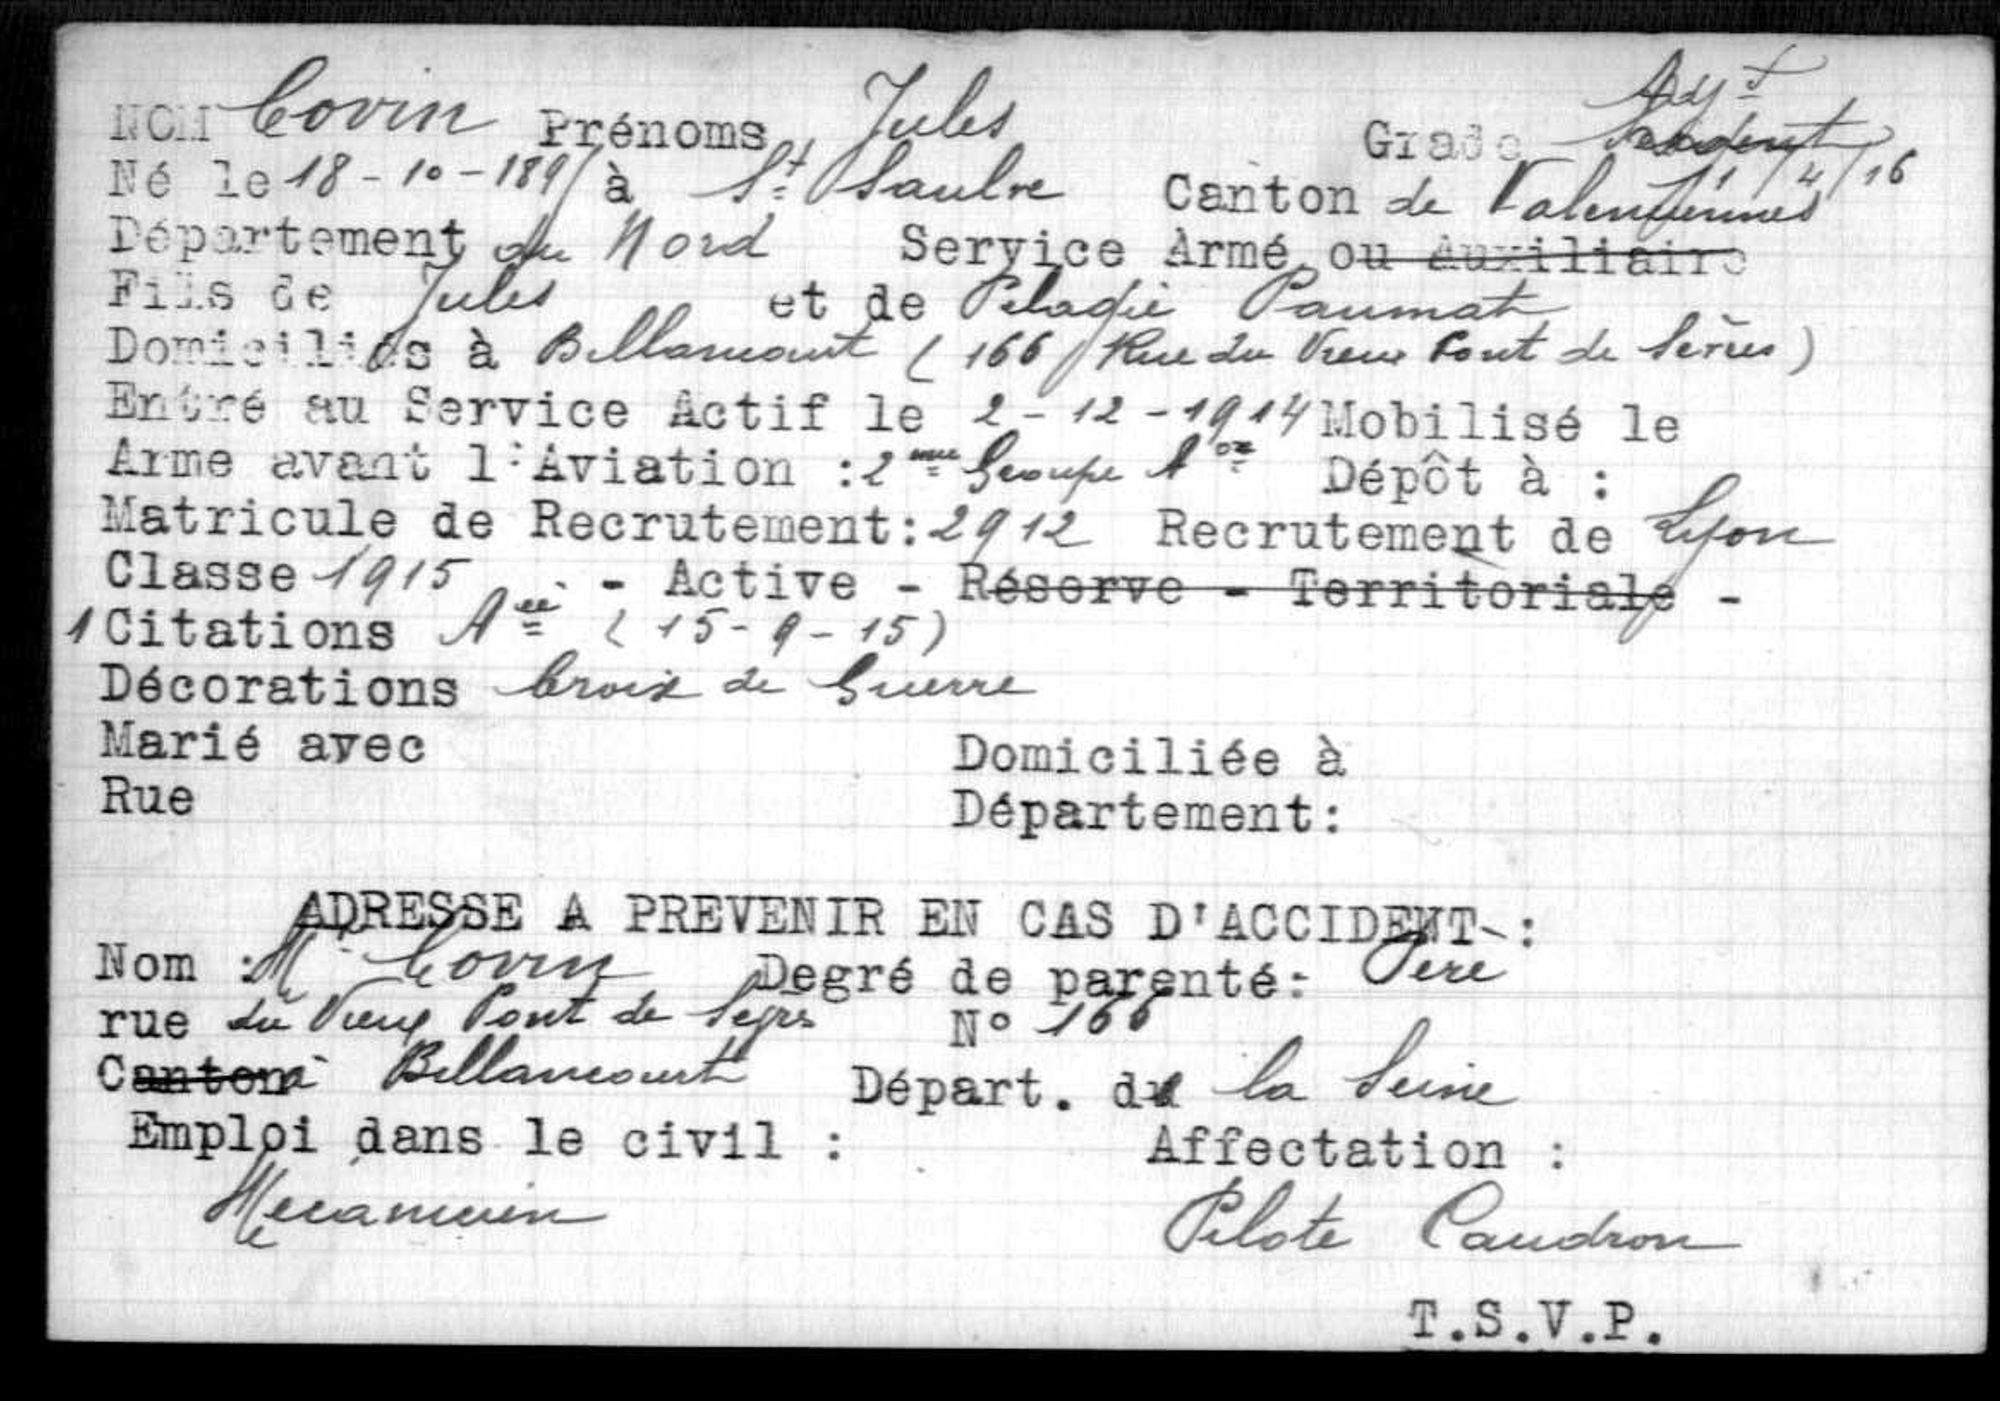 Adjt
NOM Covin Prénoms Jules Grade
Né le 18-10-189 à St Saulve Canton de Valenciennes 1/4/16
Département du Nord Service Armé ou Auxiliaire
Fils de Jules et de Pélagie Paumat
Domiciliés à Billancourt (166 Rue du Vieux Pont de Sèvres)
Entré au Service Actif le 2-12-1914 Mobilisé le
Arme avant l'Aviation : 2me Groupe Aon Dépôt à :
Matricule de Recrutement: 2912 Recrutement de Lyon
Classe 1915 - Active - Réserve - Territoriale -
1 Citations Aée (15-9-15)
Décorations Croix de Guerre
Marié avec Domiciliée à
Rue Département:
ADRESSE A PREVENIR EN CAS D'ACCIDENT :
Nom : Mr Covin Degré de parenté: Père
rue du Vieux Pont de Sèvres N° 166
Canton à Billancourt Départ. de la Seine
Emploi dans le civil : Affectation :
Mecanicien Pilote Caudron
T.S.V.P.